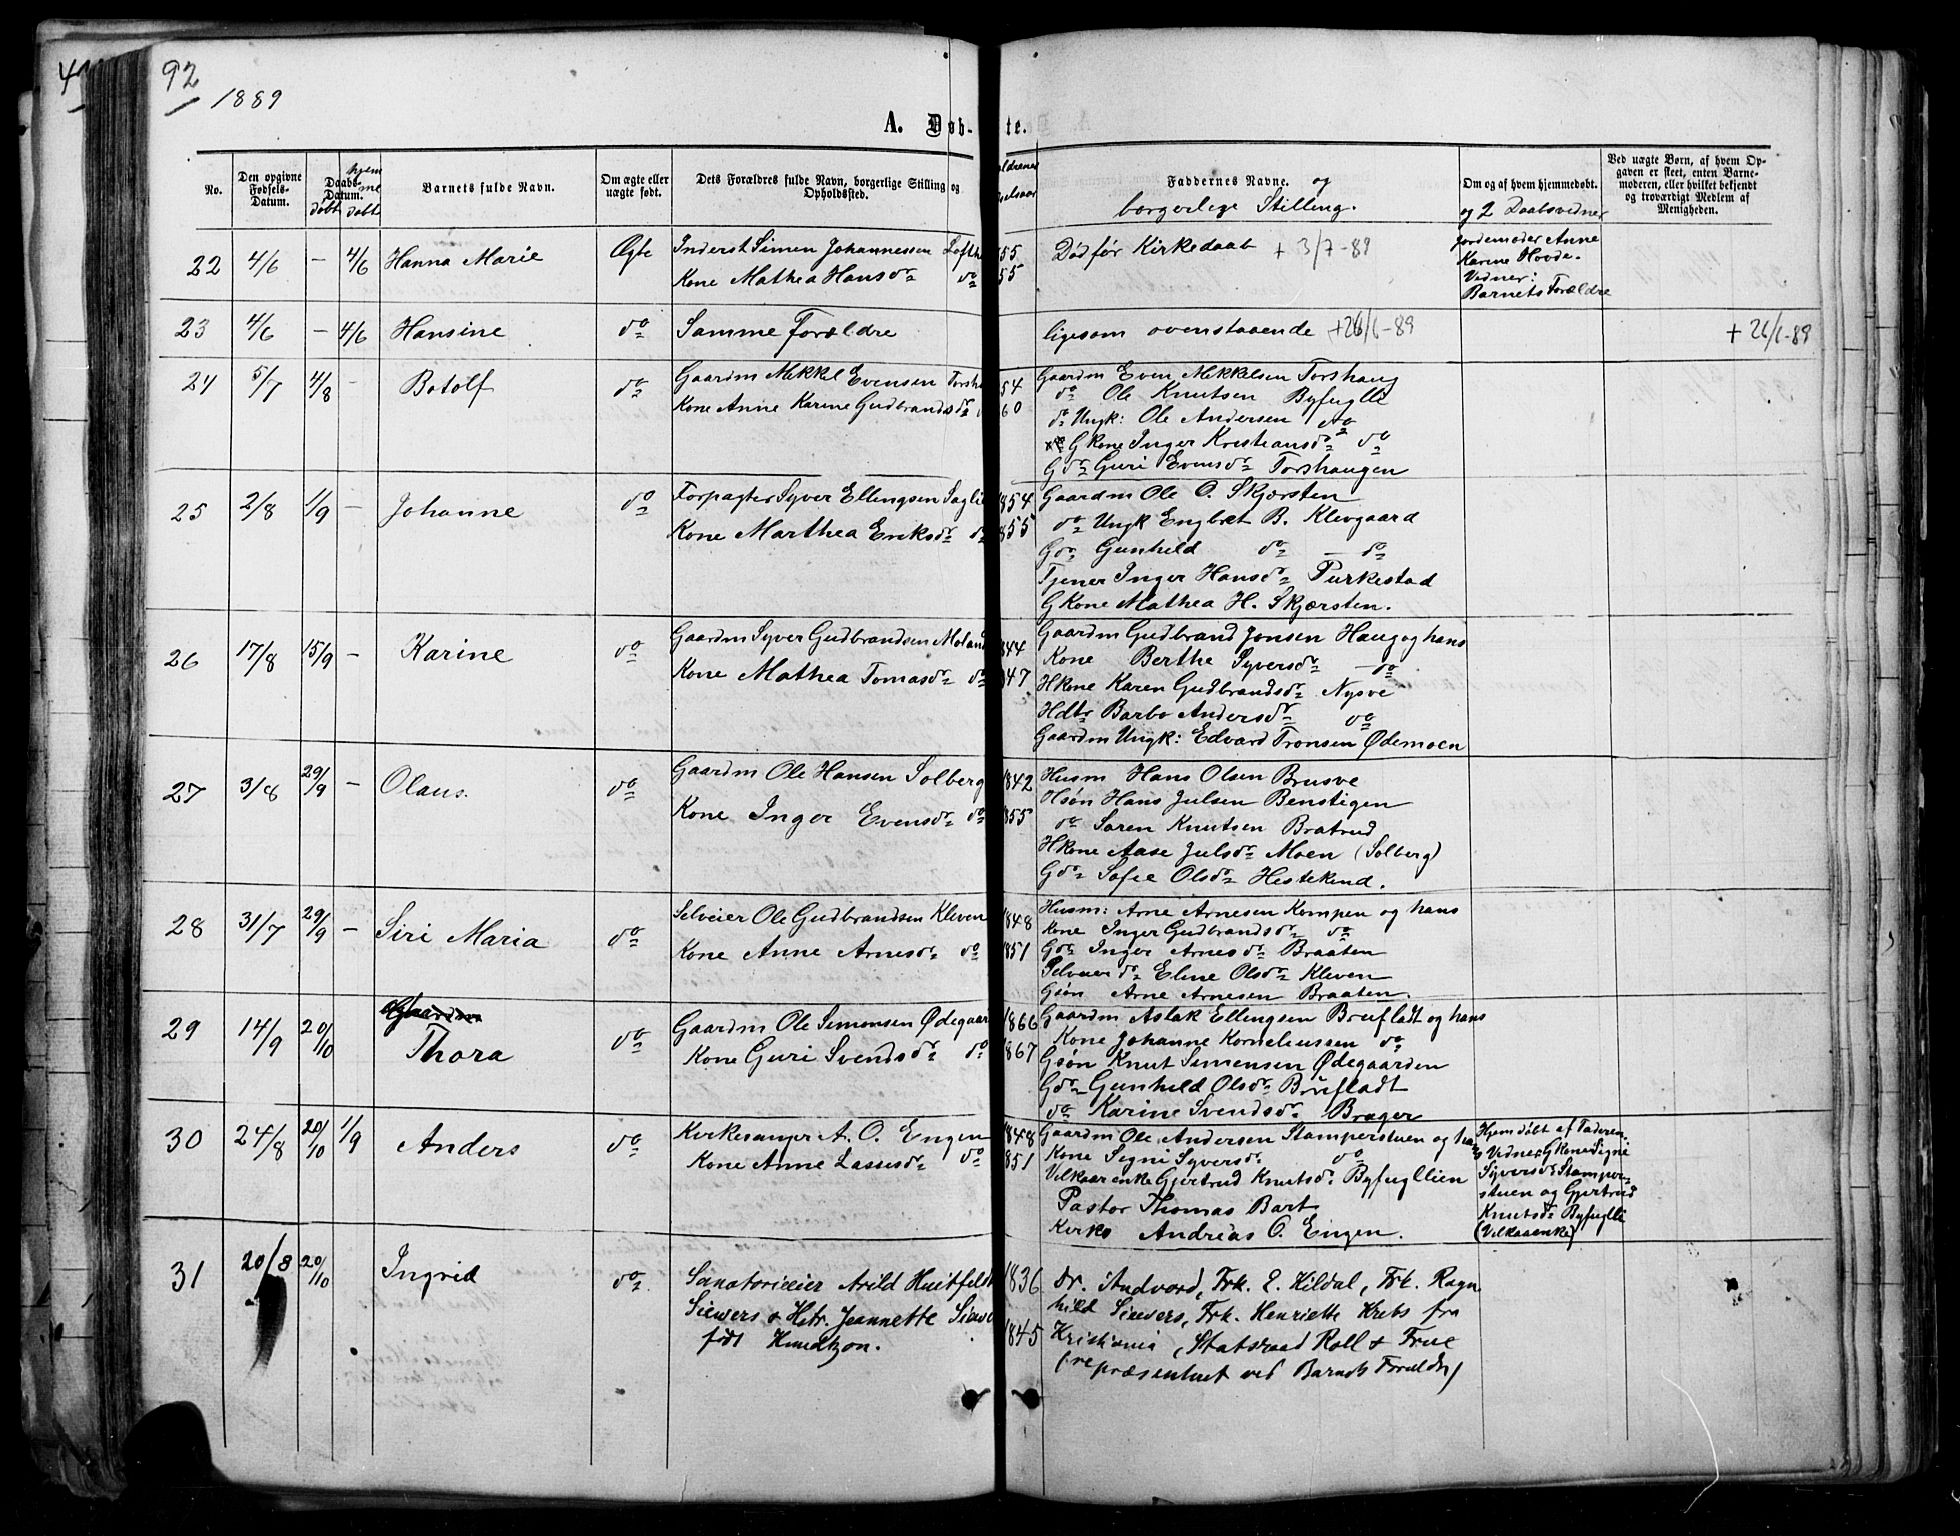 92
1889
A. Døb-
te.
No.
Den opgivne Fødsels-Datum.
Daabs-Datum.
døbt
hjemme døbt
Barnets fulde Navn.
Om ægte eller uægte født.
Dets Forældres fulde Navn, borgerlige Stilling og Opholdssted.
Faddernes Navne. og
borgerlige Stilling.
Om og af hvem hjemmedøbt.
og 2 Daabsvidner
Ved uægte Børn, af hvem Opgaven er skeet, enten Barnemoderen, eller hvilket bekjendt og troværdigt Medlem af Menigheden.
22 4/6 – 4/6 Hanna Marie Ægte Inderst Simen Johannessen Lofth 55
Kone Mathea Hansdr do 55
Død før Kirkedaab + 3/7-89
Jordemoder Anne
Karine Hovde.
Vidner:
Barnets Forældre
23 4/6 – 4/6 Hansine do Samme Forældre
ligesom ovenstaaende +26/6-89
+ 26/6-89
24 5/7 4/8 – Botolf do Gaardm Mikkel Evensen Torsha 54
Kone Anne Karine Gudbrandsdr 60
Gaardm Even Mikkelsen Torshaug
do Ole Knutsen Byfuglli
do Ungk: Ole Andersen do
G Kone Inger Kristiansdr do
Gdr Guri Evensdr Torshaugen
25 2/8 1/9 – Johanne do Forpagter Syver Ellingsen Saglie 1854
Kone Marthea Eriksdr do 1855
Gaardm Ole O. Skjærsten
do Ungk Engbret B. Klevgaard
Gdr Gunhild do – do
Tjener Inger Hansdr Purkestad
G Kone Mathea H. Skjærsten.
26 17/8 15/9 – Karine do Gaardm Syver Gudbrandsen Moland 1844
Kone Mathea Tomasdr do 1847
Gaardm Gudbrand Jonsen Haug og hans
Kone Berthe Syversdr – do
H Kone Karen Gudbrandsdr Nysve
Hdtr Barbo Andersdr do
Gaardm Ungk: Edvard Tronsen Ødemoen
27 3/8 29/9 – Olaus. do Gaardm Ole Hansen Solberg 1842
Kone Inger Evensdr do 1855
Husm Hans Olsen Brusve
Hsøn Hans Julsen Benstigen
do Søren Knutsen Bratrud
H Kone Aase Julsdr Moen (Solberg)
Gdr Sofie Olsdr Hestekind.
28 31/7 29/9 – Siri Maria do Selveier Ole Gudbrandsen Kleven 1848
Kone Anne Arnesdr do 1851
Husm: Arne Arnesen Kompen og hans
Kone Inger Gudbrandsdr do
Gdr Inger Arnesdr Braaten
Selveier dr Eline Olsdr Kleven
Gsøn Arne Arnesen Braaten.
29 14/9 20/10 Thora do Gaardm Ole Simensen Ødegaar 1866
Kone Guri Svendsdr do 1867
Gaardm Aslak Ellingsen Brufladt og hans
Kone Johanne Korneliussen do
Gsøn Knut Simensen Ødegaarden
Gdr Gunhild Olsdr Brufladt
do Karine Svendsdr Brager
30 24/8 20/10 1/9 Anders do Kirkesanger A. O. Engen 1848
Kone Anne Lassesdr do 1851
Gaardm Ole Andersen Stamperstuen og hans
Kone Signi Syversdr do
Vilkaarenke Gjertrud Knutsdr Byfugllien
Pastor Thomas Bart
Kirks Andreas O. Engen.
Hjemdøbt af Faderen.
Vidner: G Kone Signe
Syversdr Stamper-
stuen og Gjertrud
Knutsdr Byfuglli
(Vilkaaenke)
31 20/8 20/10 Ingrid do. Sanatorieeier Arild Huitfeldt 1836
Siewers & Hstr. Jeannette Siewe
født Knudtzon. 1845
Dr. Andvord, Frk. E. Hildal, Frk. Ragn
hild Siewers, Frk. Henriette Krebs fra
Kristiania, Statsraad Roll & Frue
(repræsenteret ved Barnets Forældre)